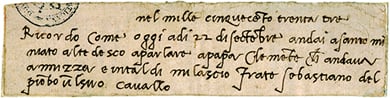 nel mille cinquecēto trenta tre
Ricordo come oggi adi 22 di sectebre andai a santo mi
niato al tedesco a parlare a papa Clemēte che andava
a nnizza e in tal di mi lascio frate Sebastiano del
piobo un suo cavallo